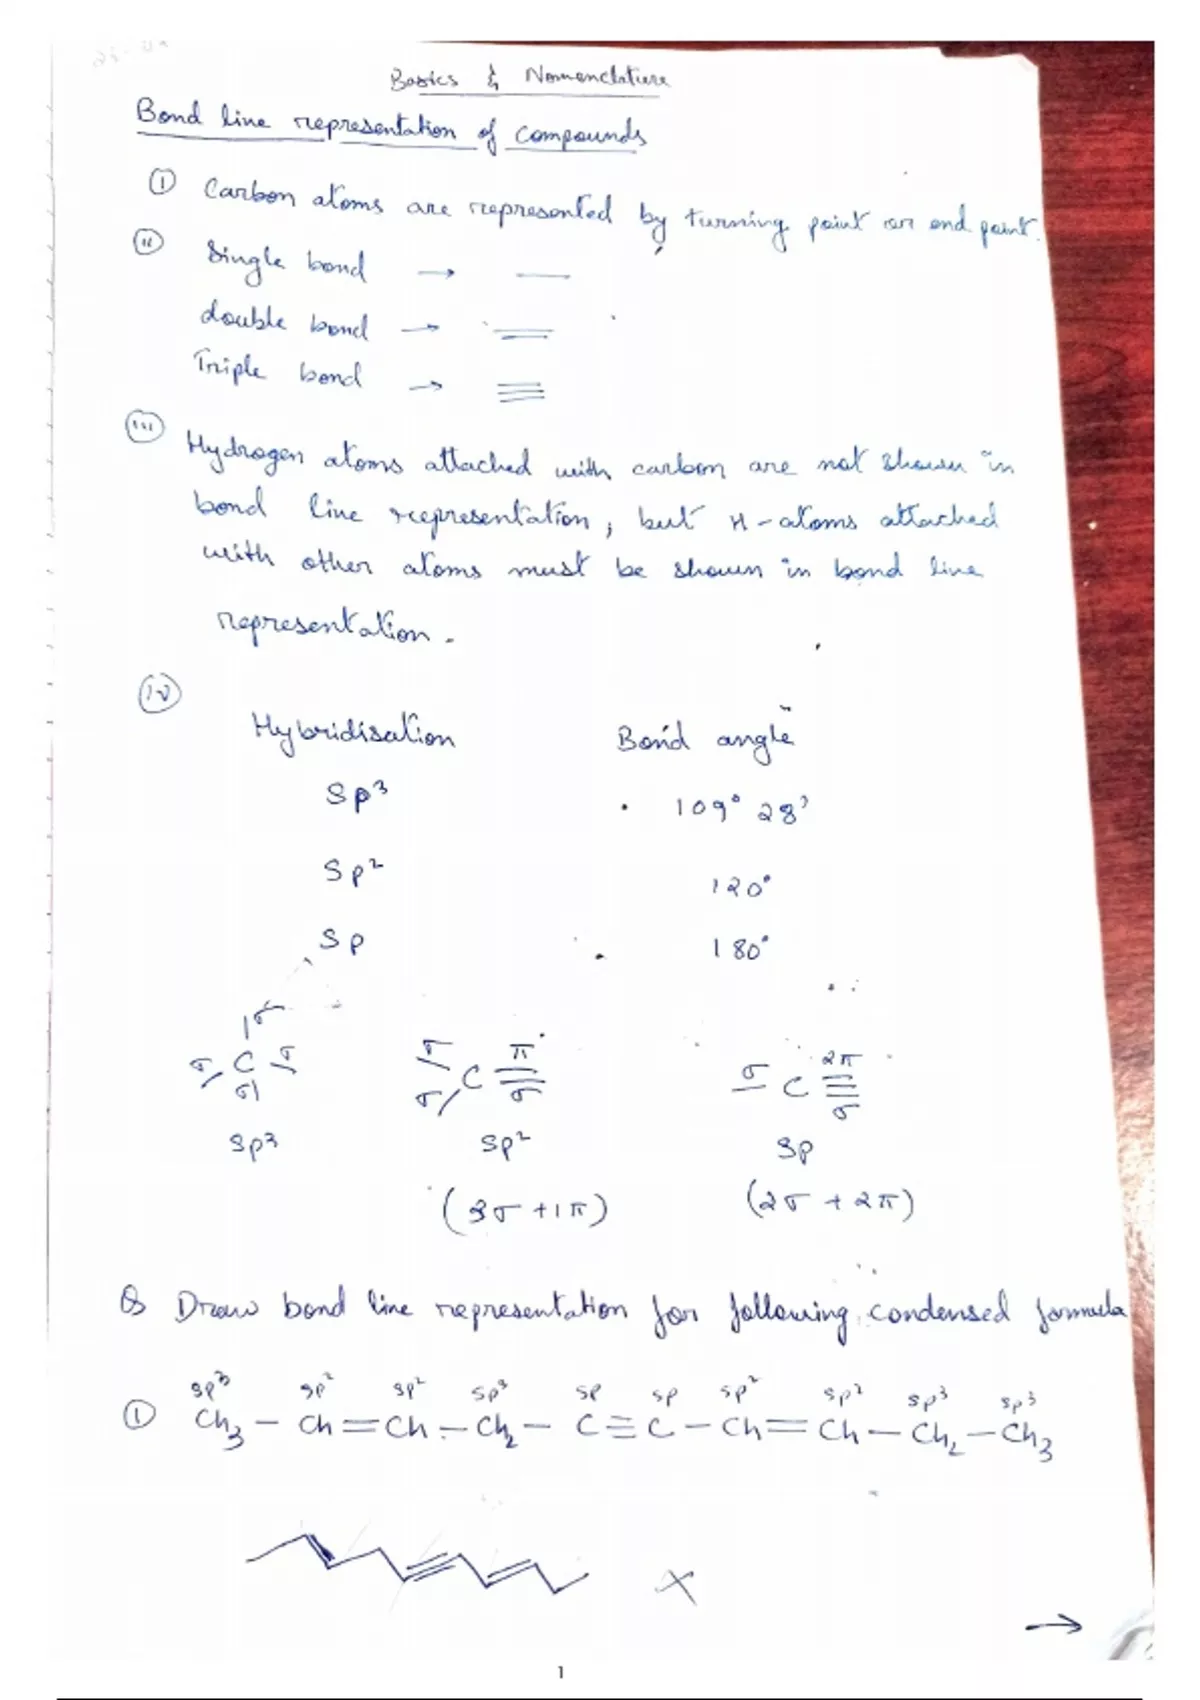 Basics & Nomenclature
Bond line representation of compounds
(i) Carbon atoms are represented by turning point or end point.
(ii) Single bond → —
double bond → =
Triple bond → ≡
(iii) Hydrogen atoms attached with carbon are not shown in
bond line representation, but H-atoms attached
with other atoms must be shown in bond line
representation.
(iv)
Hybridisation Bond angle
Sp³ 109° 28'
Sp² 120°
Sp 180°
σ
σ C σ
σ
σ π
σ C σ
σ C 2π
σ
Sp³ Sp² Sp
(3σ + 1π) (2σ + 2π)
Q Draw bond line representation for following condensed formula
sp³ sp² sp² sp³ sp sp sp² sp² sp³ sp³
① Ch₃ — Ch = Ch — Ch₂ — C ≡ C — Ch = Ch — Ch₂ — Ch₃
X
→
1